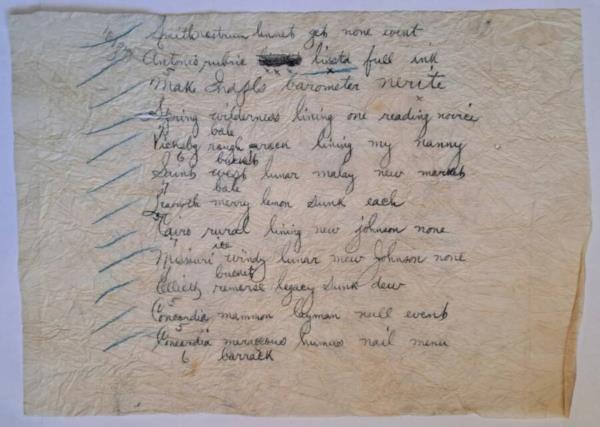 Smith nostrum linnet get none event
Antonio rubric lissta full ink
5
Make Indpls barometer nerite
x
Spring wilderness lining one reading novice
bale
Vicksby rough rack lining my nanny
6 bucket
Saint west lunar malay new market
7 bale
Leavwth merry lemon sunk each
Cairo rural lining new johnson none
7 ice
Missouri windy lunar mew Johnson none
bucket
Celliette remorse legacy sunk dew
5
Concordia mammon layman null event
5
Concordia meraccous humus nail menu
6 barrack